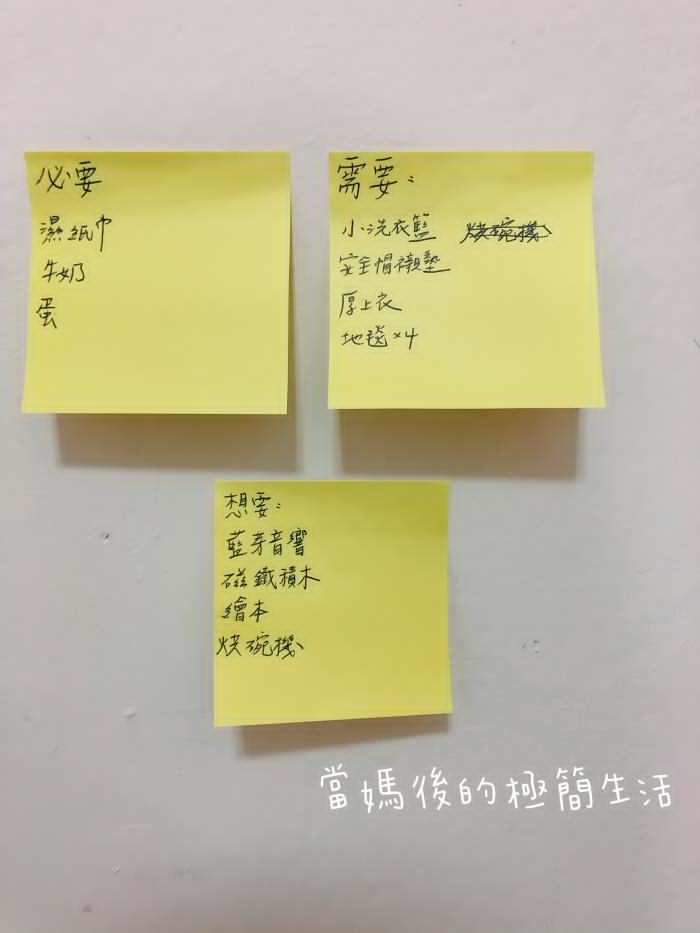 必要
濕紙巾
牛奶
蛋
需要:
小洗衣籃 烘碗機
安全帽襯墊
厚上衣
地毯×4
想要:
藍芽音響
磁鐵積木
繪本
烘碗機
當媽後的極簡生活